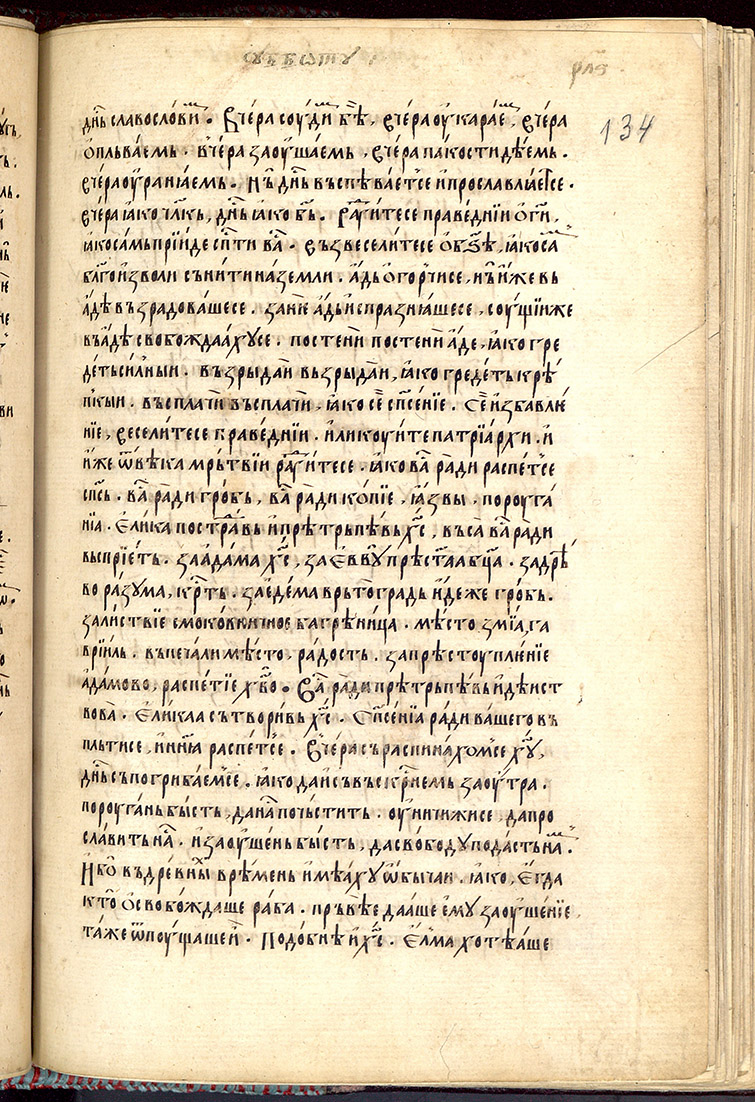 сꙋббѡтꙋ
рл҃ѕ
134
дн҃ь славослови́м . Вче́ра соуди́м бѣ̀ , вче́ра оу҆кара́ем , вче́ра
ѡ҆плъва́емь . вче́ра заоу҆ша́емь , вче́ра па́кости дѣ́емь .
вче́ра оу҆ранꙗ́емь . нь дн҃ь въспѣва́етсе и҆ прославлꙗ́етсе .
вче́ра ꙗ҆ко чл҃кь , дн҃ь ꙗ҆ко бг҃ь . Ра́дꙋитесе пра́веднїи ѻ҆ гн҃и ,
ꙗ҆ко са́мь прїи́де сп҃сти ва́с . възвеселите́се ѡ҆ бз҃ѣ , ꙗ҆ко са́м
бл҃гои҆зволи сни́ти на зе́мли . а́дь ѻ҆горчи́се , нь и҆́же вь
а́дѣ възра́доваше се . зане а́дь и҆спразнꙗ́шесе , соу́щїи же
въ а́дѣ свобожда́ахꙋсе . постени̏ постени̏ а́де , ꙗ҆ко гре
де́ть си́лныи . възрыда́и възрыда́и , ꙗ҆ко греде́ть крѣ́
пкыи . въспла́чи въспла́чи , ꙗ҆ко се̏ сп҃се́нїе . Се̏ и҆збавлю́
нїе , веселите́се пра́веднїи . ликоу́ите патрїа́рхи . и҆
и҆́же ѿ вѣ́ка мрь́твїи ра́дꙋитесе . ꙗ҆ко ва́с ра́ди распе́тсе
сп҃сь . ва́с ра́ди гро́бь , ва́с ра́ди ко́пїе , ꙗ҆́звы , пороуга́
нїа . Е҆ли́ка постра́да и҆ прѣтрьпѣ́вь х҃с , въса ва́с ра́ди
въспрїе́ть . за а҆да́ма х҃с , за е҆́ввꙋ прѣст҃аа бц҃а . за дрѣ́
во ра́зꙋма , кр҃ть . за е҆де́ма врьтогра́дь и҆де́же гро́бь .
за ли́ствїе смоко́вничное багрѣни́ца . мѣ́сто зми́а , га
врїи́ль . въ печа́ли мѣ́сто , ра́дость . за прѣстоупле́нїе
а҆да́мово , распе́тїе хв҃о . Ва́с ра́ди прѣтрьпѣ́вь и҆ дѣ́ист
вова̏ . Е҆ли́каа сътвори́вь х҃с . Сп҃се́нїа ра́ди ва́шего въ
пльти́се , и҆ нн҃ꙗ распе́тсе . Вче́ра съраспина́хомсе хꙋ҃ ,
дн҃ь съпогриба́емсе . ꙗ҆ко да и҆ съвъскр҃снемь заоу́тра .
пороуга́нь бы́сть , да на́с почьсти́ть . оу҆ничижи́се , да про
сла́вить на́с . и҆ заоу҆ше́нь бы́сть , да свобо́дꙋ пода́сть на́м .
И҆ бо̏ въ дре́вних врѣ́мень и҆мѣ́ахꙋ ѡ҆бы́чаи . ꙗ҆ко , Е҆гда
кто̏ ѻ҆свобожда́ше ра́ба . пръвѣ́е даа́ше е҆мꙋ̏ заоу҆ше́нїе ,
та́же ѿпоуща́ше и̏ . Подо́бнѣ и҆ х҃с . Е҆лма хотѣ́аше